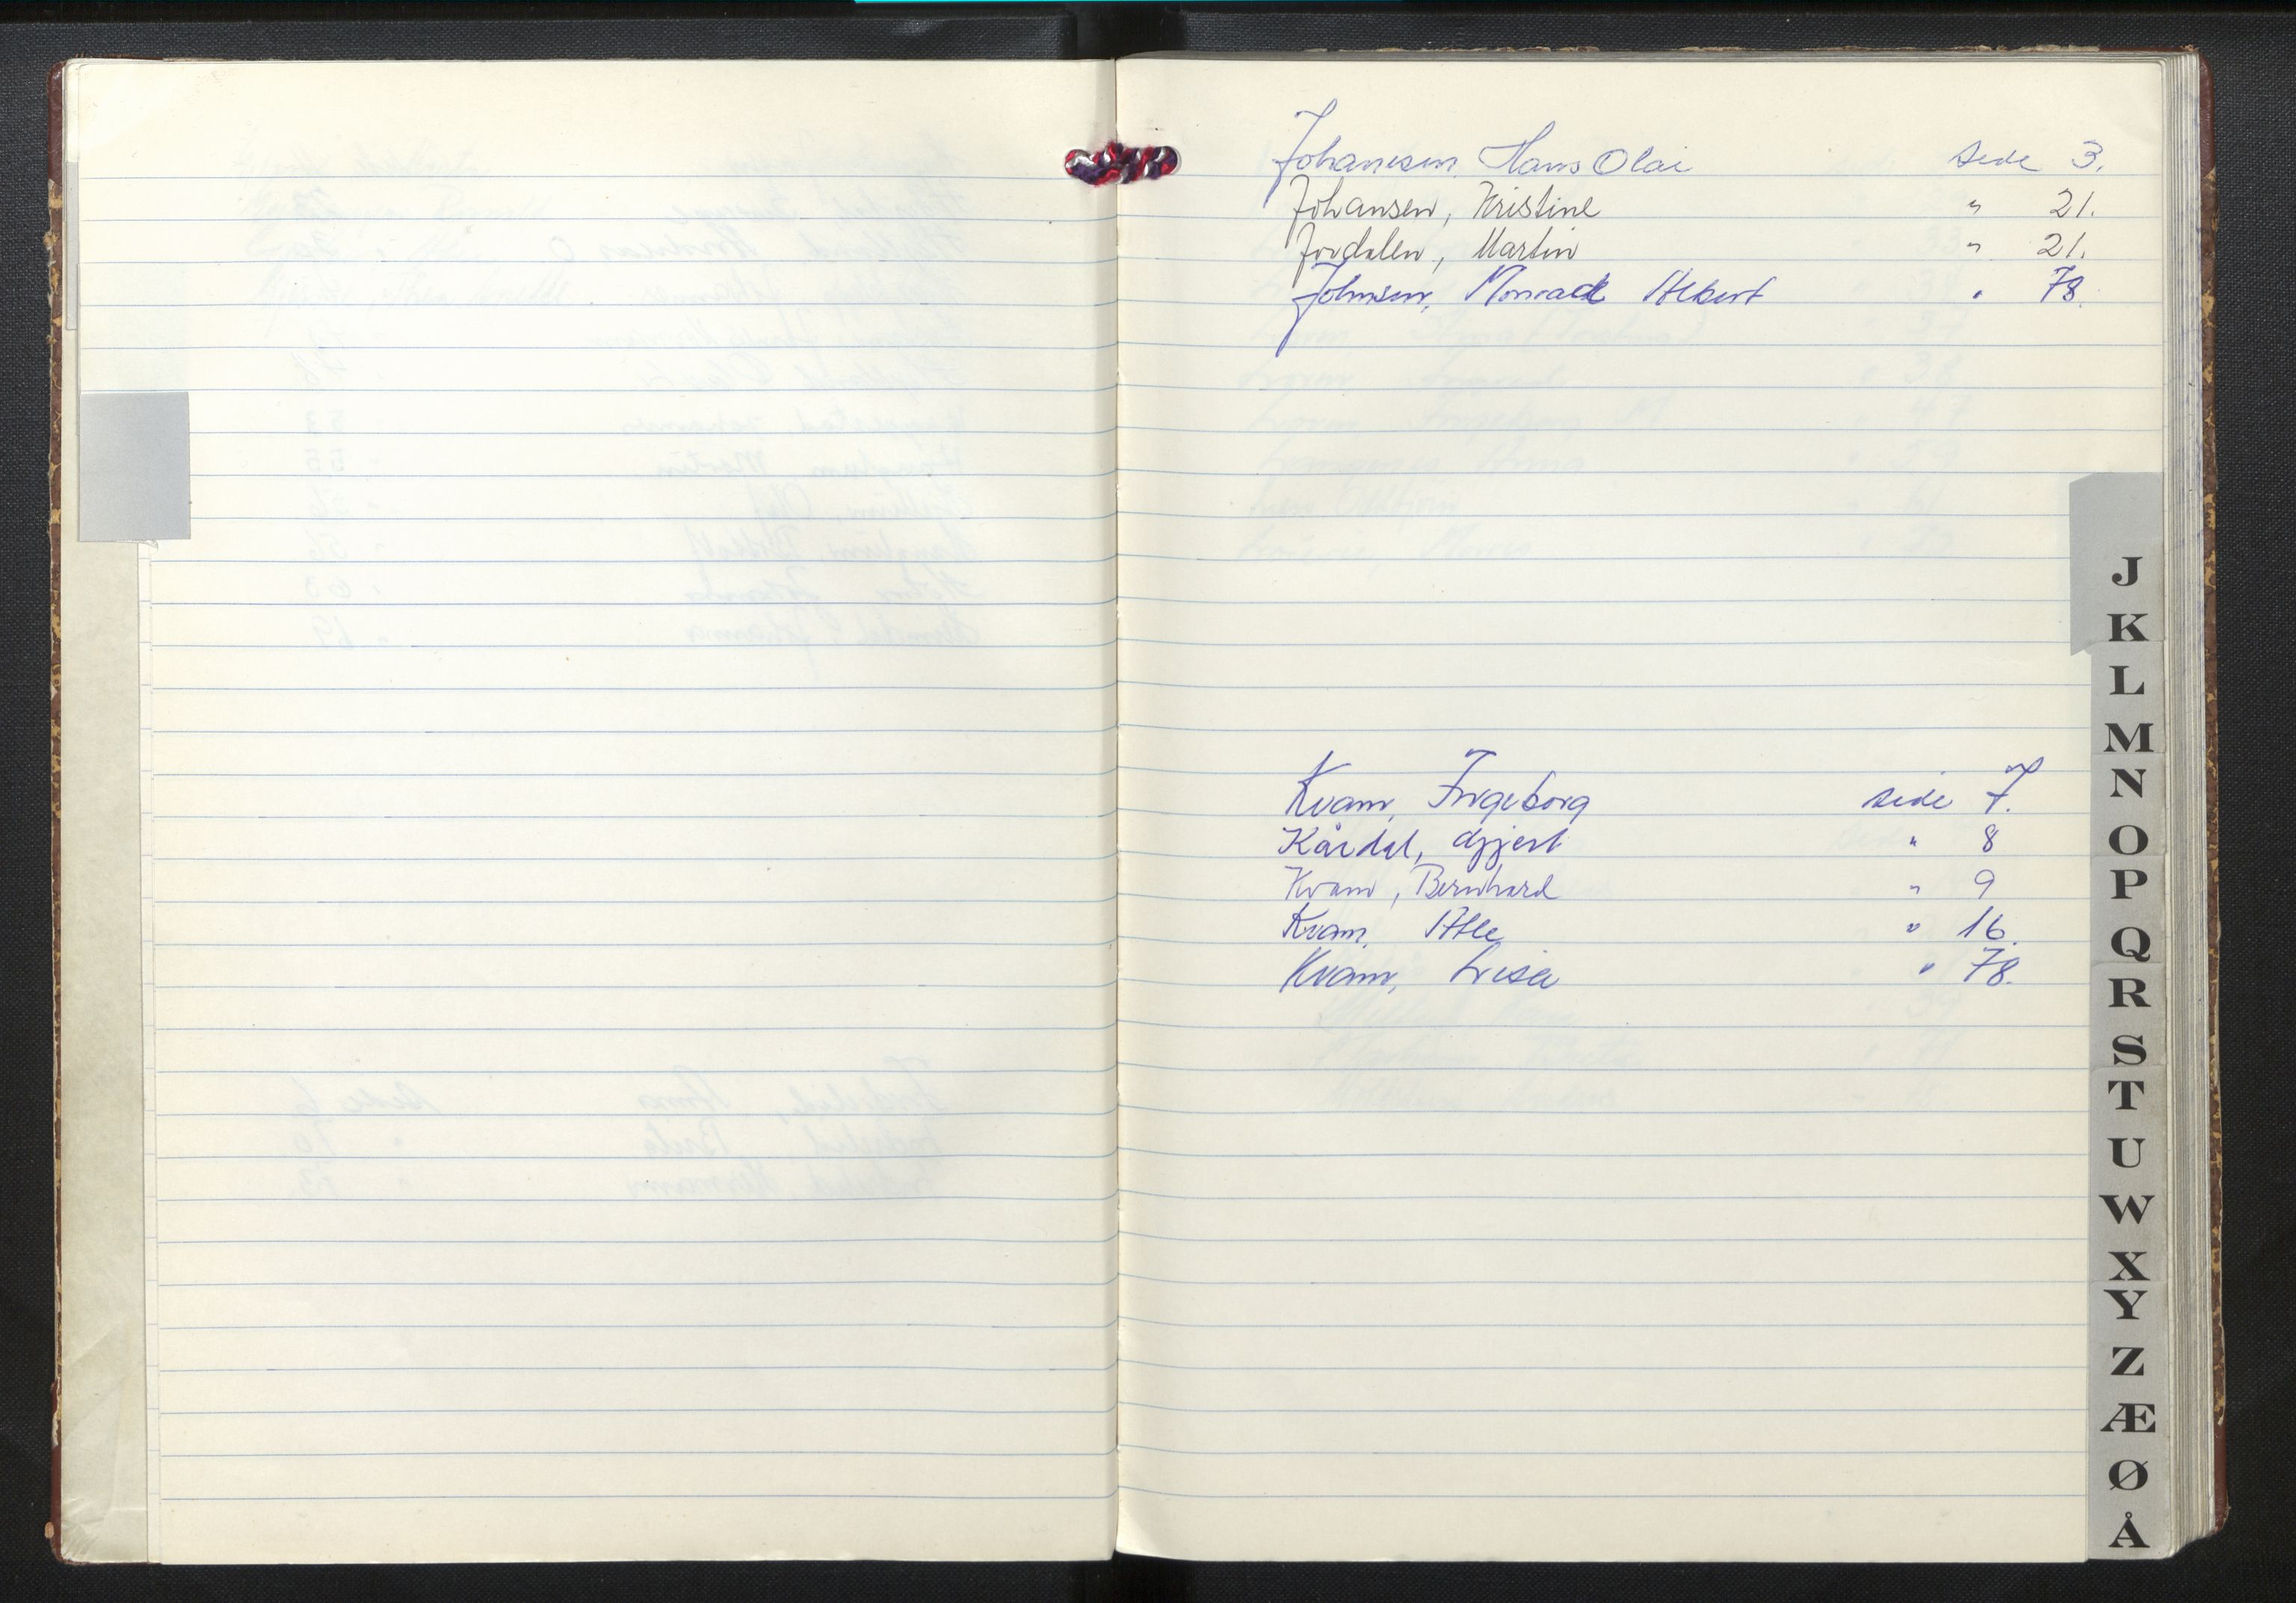 Johannesen, Hans Olai side 3.
Johansen, Kristine " 21.
Jordalen, Martin " 21.
Johnsen, Monrad Albert " 78.
Kvam, Ingeborg side 7.
Kårdal, Gjjert " 8
Kvam, Bernhard " 9
Kvam, Atle " 16.
Kvam, Lisa " 78.
J
K
L
M
N
O
P
Q
R
S
T
U
W
X
Y
Z
Æ
Ø
Å